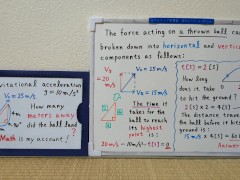 vitational acceleration
g = 10 m/s²
V₀ = 25 m/s
How many
meters away
did the ball land
?
Math is my account!
The force acting on a thrown ball ca
broken down into horizontal and vertic
components as follows:
V₀ = 25 m/s
= 20
m/s
The time it
takes for the
ball to
reach its
highest
point is:
20 m/s - 10 m/s² · t(s) = 0
How long
does it take
to hit the ground?
2 (s) x 2 = 4 (s)
The distance trave
the ball before it hits
ground is:
15 m/s x 4(s) = 60
Answer